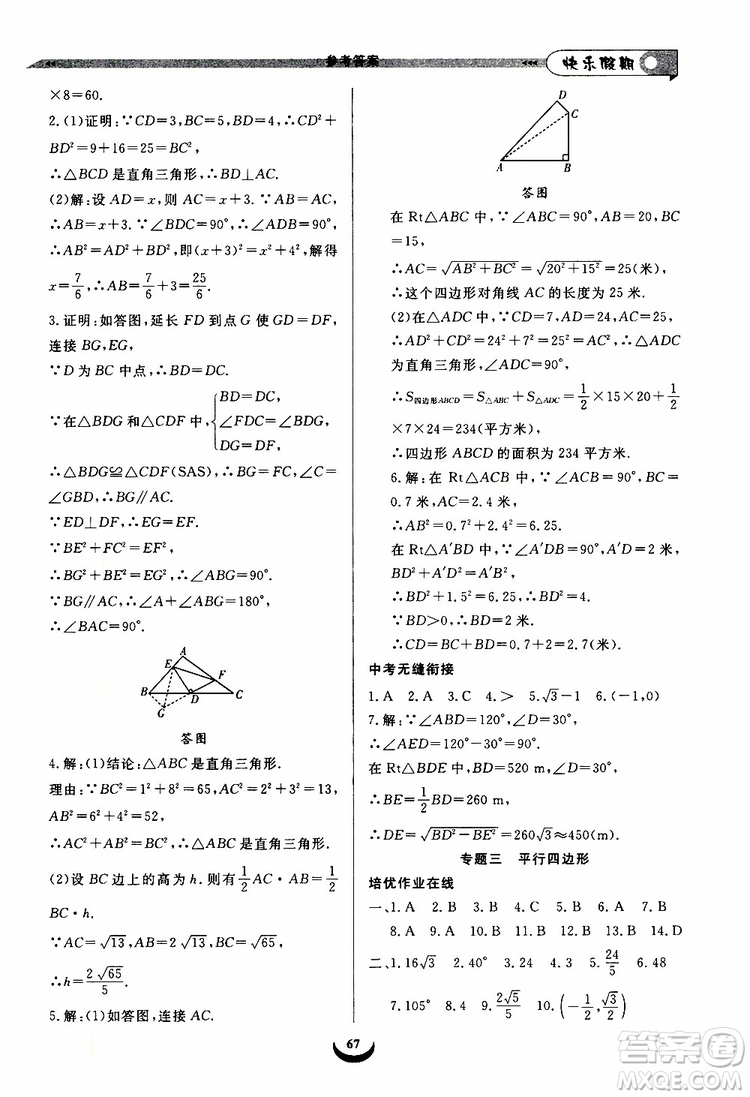 参考答案
快乐假期
×8=60.
2.(1)证明:∵CD=3,BC=5,BD=4,∴CD²+
BD²=9+16=25=BC².
∴△BCD是直角三角形,∴BD⊥AC.
(2)解:设AD=x,则AC=x+3.∵AB=AC,
∴AB=x+3.∵∠BDC=90°,∴∠ADB=90°,
∴AB²=AD²+BD²,即(x+3)²=x²+4²,解得
x=7/6,∴AB=7/6+3=25/6.
3.证明:如答图,延长FD到点G使GD=DF,
连接BG,EG,
∵D为BC中点,∴BD=DC.
∵在△BDG和△CDF中,{BD=DC, ∠FDC=∠BDG, DG=DF
∴△BDG≌△CDF(SAS),∴BG=FC,∠C=
∠GBD,∴BG∥AC.
∵ED⊥DF,∴EG=EF.
∵BE²+FC²=EF²,
∴BG²+BE²=EG²,∴∠ABG=90°.
∵BG∥AC,∴∠A+∠ABG=180°,
∴∠BAC=90°.
A
E
F
B
D
C
G
答图
4.解:(1)结论:△ABC是直角三角形.
理由:∵BC²=1²+8²=65,AC²=2²+3²=13,
AB²=6²+4²=52,
∴AC²+AB²=BC²,∴△ABC是直角三角形.
(2)设BC边上的高为h.则有1/2AC·AB=1/2
BC·h.
∵AC=√13,AB=2√13,BC=√65,
∴h=2√65/5.
5.解:(1)如答图,连接AC.
D
C
A
B
答图
在Rt△ABC中,∵∠ABC=90°,AB=20,BC
=15,
∴AC=√(AB²+BC²)=√(20²+15²)=25(米).
∴这个四边形对角线AC的长度为25米.
(2)在△ADC中,∵CD=7,AD=24,
∴AD²+CD²=AC²=24²+7²=25²,∴△ADC
为直角三角形,∠ADC=90°,
∴S四边形ABCD=S△ABC+S△ADC=1/2×15×20+1/2
×7×24=234(平方米),
∴四边形ABCD的面积为234平方米.
6.解:在Rt△ACB中,∵∠ACB=90°,BC=
0.7米,AC=2.4米,
∴AB²=0.7²+2.4²=6.25.
在Rt△A′BD中,∵∠A′DB=90°,A′D=1.5米,
BD²+A′D²=A′B²,
∴BD²+1.5²=6.25,∴BD²=4.
∵BD>0,∴BD=2米.
∴CD=BC+BD=0.7+2=2.7(米).
中考无缝衔接
1.A 2.A 3.A 4.> 5.√3-1 6.(-1,0)
7.解:∵∠ABD=120°,∠D=30°,
∴∠AED=120°-30°=90°,
在Rt△BDE中,BD=520 m,∠D=30°,
∴BE=1/2BD=260 m,
∴DE=√(BD²-BE²)=260√3≈450(m).
专题三 平行四边形
培优作业在线
一、1.A 2.B 3.A 4.C 5.A 6.A 7.B
8.A 9.B 10.A 11.B 12.B 13.B 14.D
二、1.16√3 2.40° 3.12 4.20 5.24/5 6.48
7.105° 8.4 9.2√5/5 10.(-1/2,√3/2)
67
答案圈
MXQE.COM